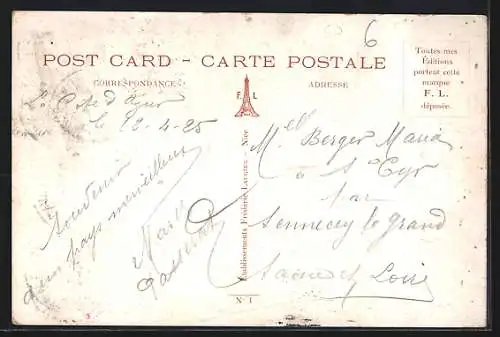 6
POST CARD - CARTE POSTALE
CORRESPONDANCE
ADRESSE
Toutes mes
Éditions
portent cette
marque
F. L.
déposée.
F. L.
Côte d'Azur
le 12-4-25
Souvenir
d'un pays merveilleux
Établissements Frédéric Laugier - Nice
N° 1
Melle Berger Maria
à St Cyr
par
Sennecey le Grand
Saone et Loire